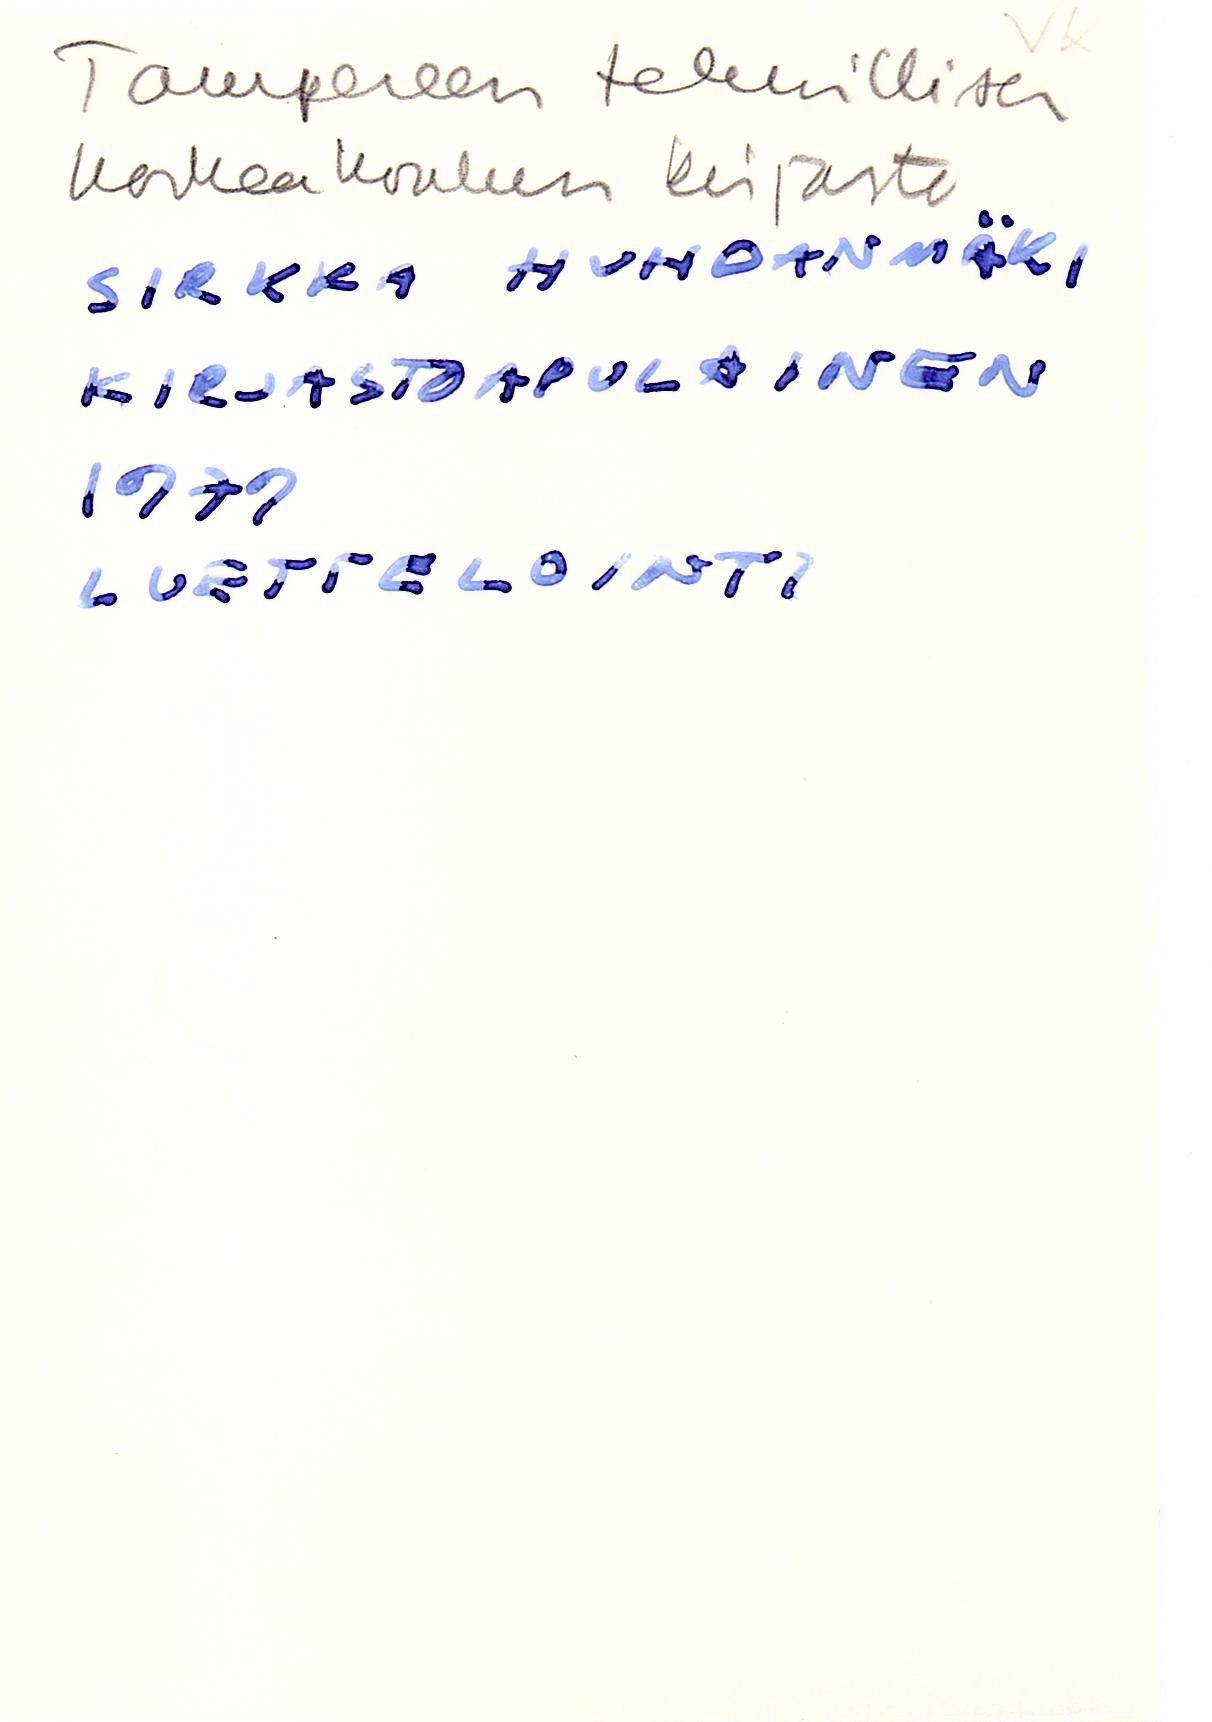 VK
Tampereen teknillisen
korkeakoulun kirjasto
SIRKKA HUHDANMÄKI
KIRJASTOAPULAINEN
1979
LUETTELOINTI